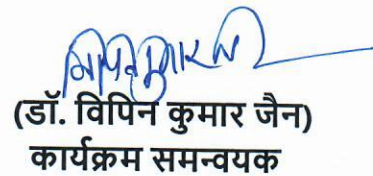 (डॉ. विपिन कुमार जैन)
कार्यक्रम समन्वयक